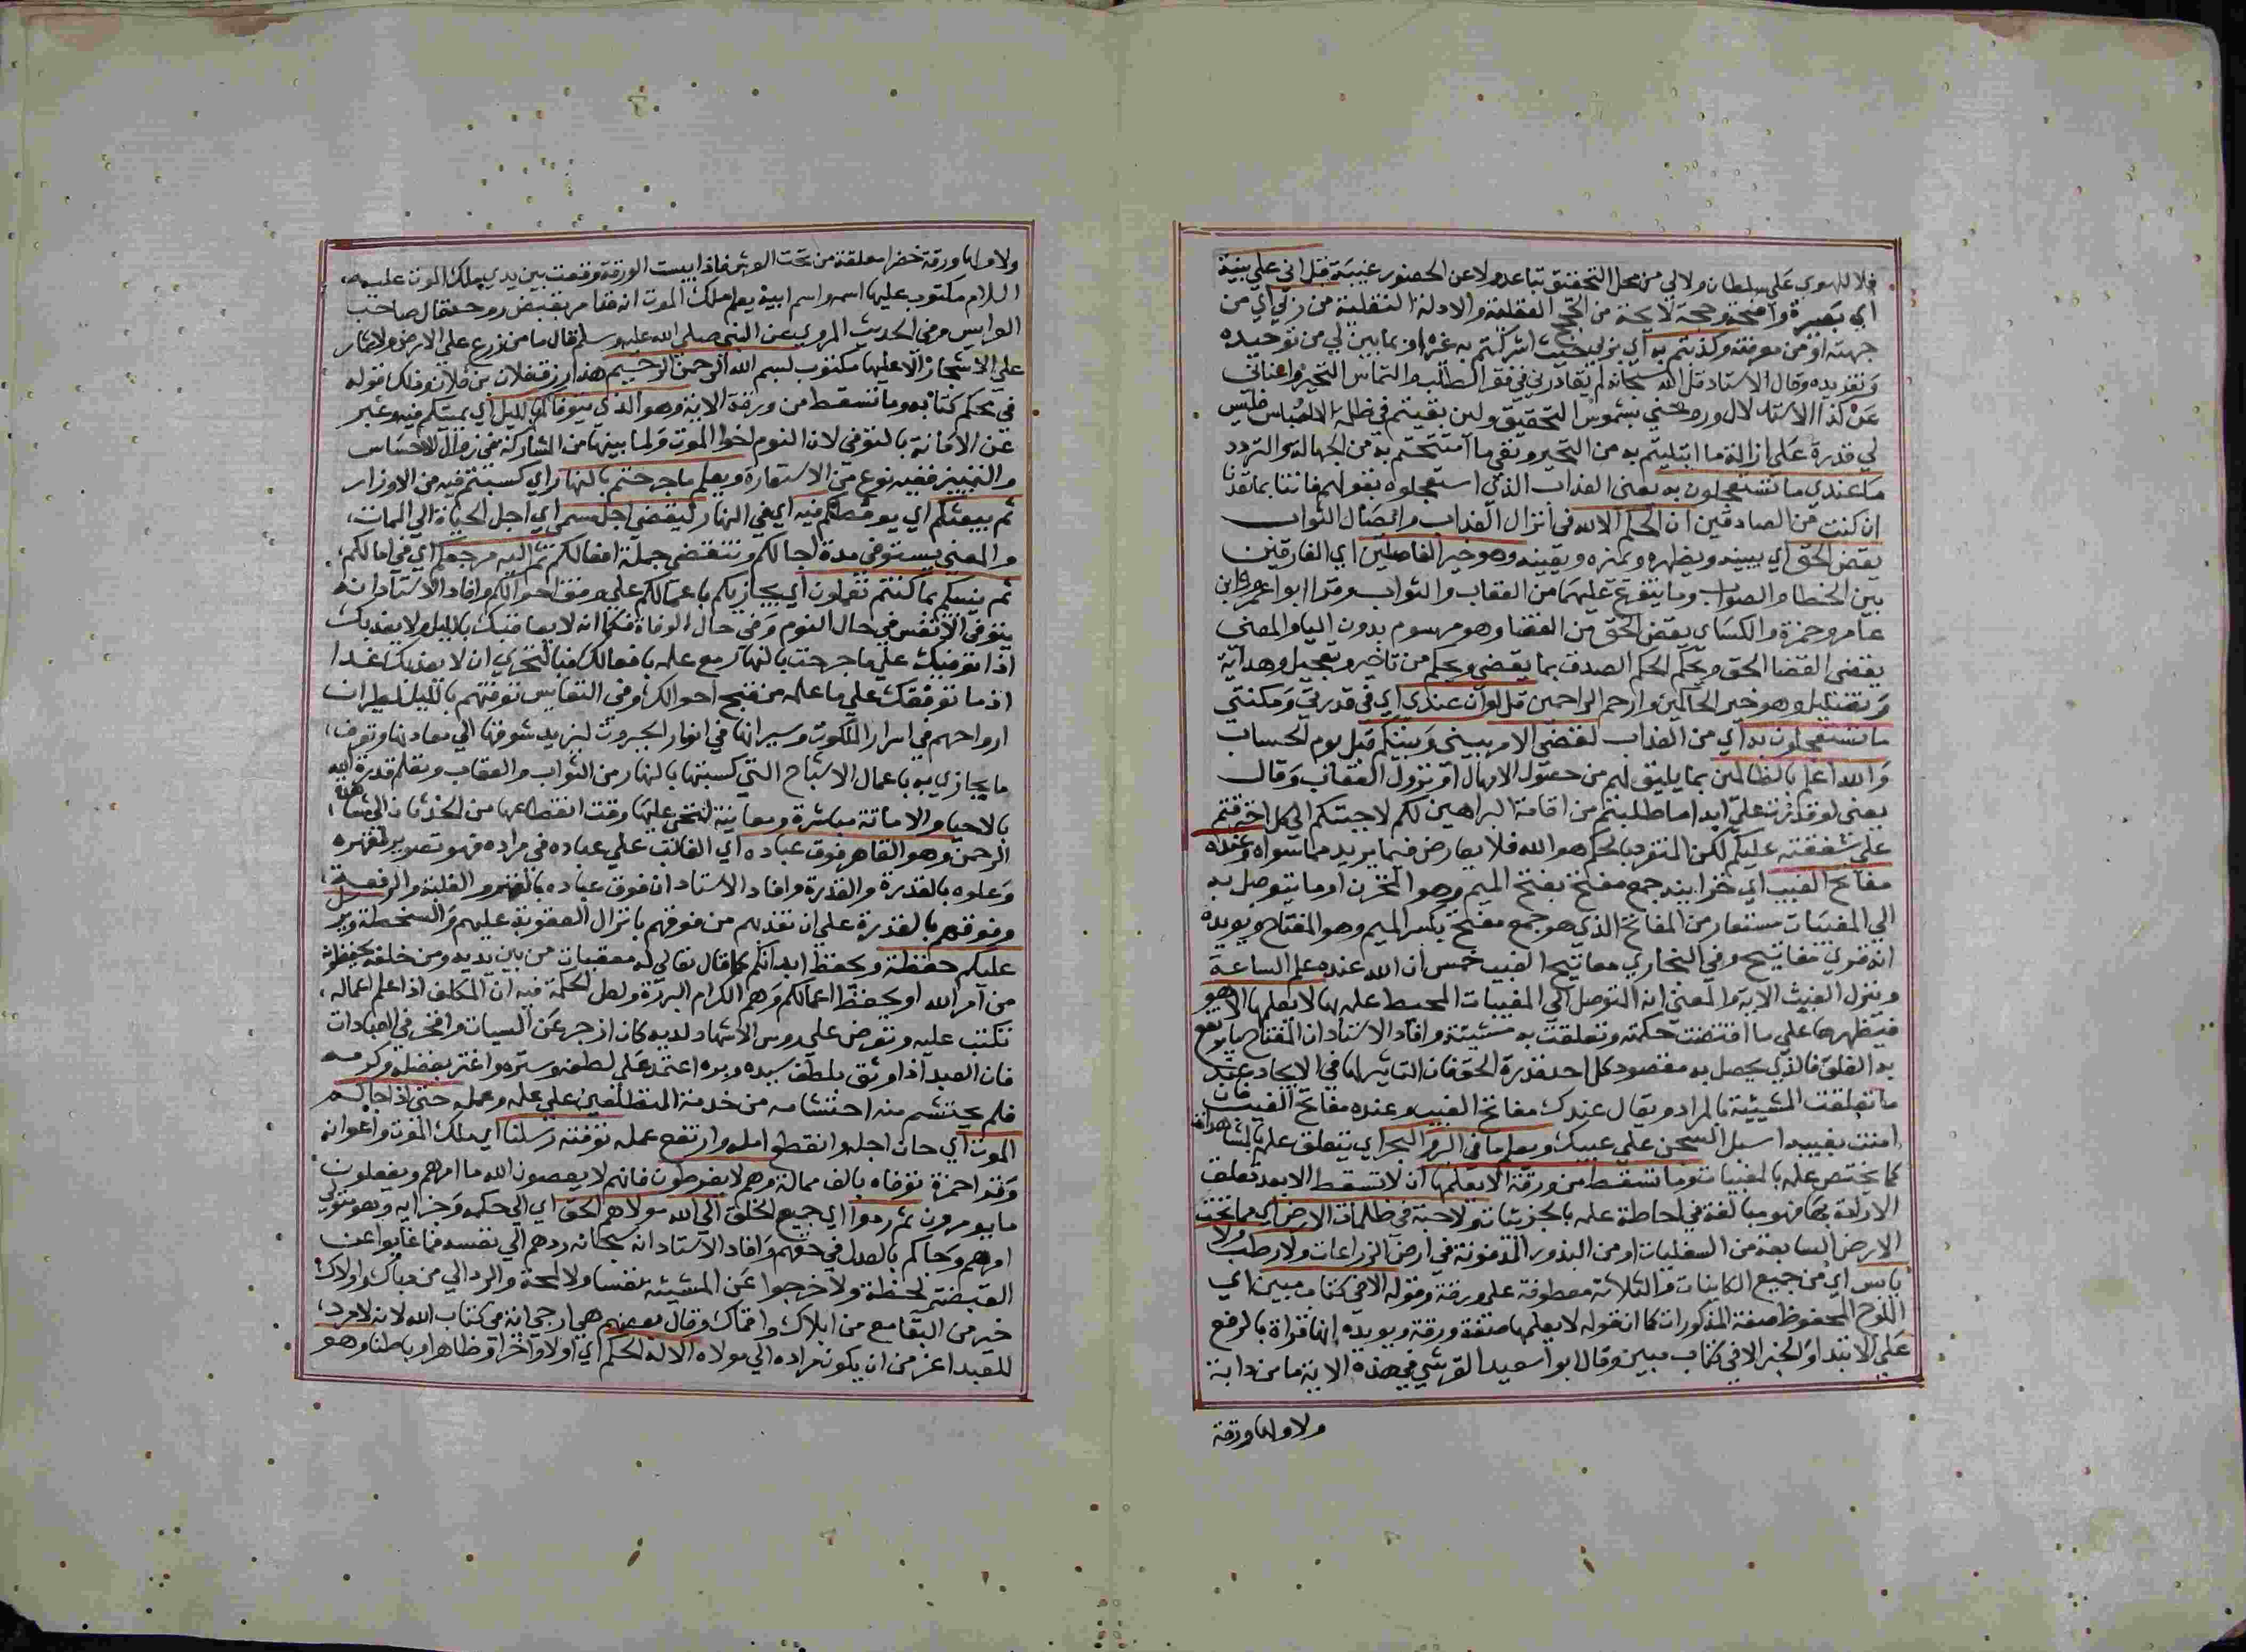 فلا للهوى على سلطان ولا لي من محل التحقيق تباعد ولا عن الحضور غيبة قل اني على بينة
اي بصيرة واضحة وحجة لايحة من الحجج العقلية والادلة النقلية من ربي اي من
جهته او من معرفته وكذبتم به اي بربي حيث اشركتم به غيره او بما بين لي من توحيده
وتفريده وقال الاستاد قل الله سبحانه لم يغادرني في فقر الطلب والتماس التحير واغناني
عن كد الاستدلال وروحني بشموس التحقيق ولين بقيتم في ظلمة الالتباس فليس
لي قدرة على ازالة ما ابتليتم به من التحير ونفي ما امتحنتم به من الجهالة والتردد
ما عندي ما تستعجلون به يعني العذاب الذي استعجلوه بقولهم فاتنا بما تعدنا
ان كنت من الصادقين ان الحكم الا لله في انزال العذاب وايصال الثواب
يقص الحق اي يبينه ويظهره ويميزه ويعينه وهو خير الفاصلين اي الفارقين
بين الخطا والصواب وما يتفرع عليهما من العقاب والثواب وقرا ابوا عمرو وابن
عامر وحمزة والكساي يقض الحق من القضا وهو مرسوم بدون اليا والمعنى
يقضي القضا الحق ويحكم الحكم الصدق بما يقضي ويحكم من تاخير وتعجيل وهداية
وتضليل وهو خير الحاكمين وارحم الراحمين قل لو ان عندي اي في قدرتي ومكنتي
ما تستعجلون به اي من العذاب لقضي الامر بيني وبينكم قبل يوم الحساب
والله اعلم بالظالمين بما يليق لهم من حصول الامهال او نزول العقاب وقال
يعني لو قدرت على ابدا ما طلبتم من اقامة البراهين لكم لاجبتكم الى كل اقترحتم
على شفقته عليكم لكن المتفرد بالحكم هو الله فلا يعارض فيما يريد مما سواه وعنده
مفاتح الغيب اي خزاينه جمع مفتح بفتح الميم وهو المخزن او ما يتوصل به
الى المغيبات مستعار من المفاتح الذي هو جمع مفتح بكسر الميم وهو المفتاح ويويده
انه قري مفاتيح وفي البخاري مفاتيح الغيب خمس ان الله عنده علم الساعة
وينزل الغيث الاية والمعنى انه التوصل الى المغيبات المحيط علمه بها لا يعلمها الا هو
فيظهرها على ما اقتضت حكمته وتعلقت به مشيئته وافاد الاستاد ان المفتاح ما يرفع
به الغلق فالذي يحصل به مقصود كل احد قدرة الحق فان التاثير لها في الايجاد عند
ما تعلقت المشيئة بالمراد ويقال عندك مفاتح الغيب وعنده مفاتح الغيب فان
امنت بغيبه اسبل الستر على عيبك ويعلم ما في البر والبحر اي يتعلق علمه بالمشاهدات
كما يختص علمه بالمغيبات وما تسقط من ورقة الا يعلمها ان لا تسقط الا بعد تعلق
الارادة بها فهو مبالغة في احاطة علمه بالجزئيات ولا حبة في ظلمات الارض اي مما تحت
الارض السابعة من السفليات او من البذور المدفونة في ارض الزراعات ولا رطب ولا
يابس اي من جميع الكاينات والثلاثة معطوفة على ورقة وقوله الا في كتاب مبين اي
اللوح المحفوظ صفة المذكورات كما ان قوله لا يعلمها صفة ورقة ويويده انها قراة بالرفع
على الابتدا والخبر الا في كتاب مبين وقال ابوا سعيد القرشي في هذه الاية ما من دابة
ولا ولها ورقة
ولا ولها ورقة خضرا معلقة من تحت العرش فاذا يبست الورقة وقعت بين يدي ملك الموت عليه
السلام مكتوب عليها اسمه واسم ابيه يعلم ملك الموت انه قد امر بقبض روحه قال صاحب
العرايس وفي الحديث المروي عن النبي صلى الله عليه وسلم قال ما من زرع على الارض ولا ثمار
على الاشجار الا عليها مكتوب بسم الله الرحمن الرحيم هذا رزق فلان بن فلان وذلك قوله
في محكم كتابه وما تسقط من ورقة الاية وهو الذي يتوفاكم بالليل اي يميتكم فيه وعبر
عن الاماتة بالتوفي لان النوم اخو الموت ولما بينهما من المشاركة في زوال الاحساس
والتمييز ففيه نوع من الاستعارة ويعلم ما جرحتم بالنهار اي كسبتم فيه من الاوزار
ثم يبعثكم اي يوقظكم فيه اي في النهار ليقضى اجل مسمى اي اجل الحياة الى الممات
والمعنى يستوفى مدة اجالكم وتنقضي جملة افعالكم ثم اليه مرجعكم اي في امالكم
ثم ينبيكم بما كنتم تعملون اي يجازيكم باعمالكم على وفق احوالكم وافاد الاستاد انه
يتوفى الانفس في حال النوم وفي حال الوفاة فكما انه لا يعاقبك بالليل ولا يعذبك
اذا توفيك على ما جرحت بالنهار مع علمه بافعالك فبالحري ان لا يعذبك غدا
اذ ما توقفك على ما علمه من قبح احوالك وفي النفايس توفتهم بالليل لطيران
ارواحهم في اسرار الملكوت وسيرانها في انوار الجبروت لتزيد شوقها الى معادنها وتعرف
ما يجازي به باعمال الاشباح التي كسبتها بالنهار من الثواب والعقاب وتعلم قدرة الله
بالاحيا والاماتة مباشرة ومعاينة لتحن عليها وقت انقطاعها من الحدثان الى مشاهدة
الرحمن وهو القاهر فوق عباده اي الغالب على عباده في مراده فهو تصوير لقهره
وعلوه بالقدرة والقدرة وافاد الاستاد ان فوق عباده بالقهر والغلبة والرفعة
وفوقهم بالقدرة على ان تعذبهم من فوقهم بانزال العقوبة عليهم والسخطة ويرسل
عليكم حفظة ويحفظ ابدانكم كما قال تعالى له معقبات من بين يديه ومن خلفه يحفظونه
من امر الله او يحفظ اعمالكم وهم الكرام البررة ولعل الحكمة فيه ان المكلف اذا علم اعماله
تكتب عليه وتعرض على روس الاشهاد لديه كان ازجر عن السيات وافخر في العبادات
فان العبد اذا وثق بلطف سيده وبره اعتمد على لطفه وستره واغتر بفضله وكرمه
فلم يحتشم منه احتشامه من خدمة المتطلعين على علمه وعمله حتى اذا جا احدكم
الموت اي حان اجله وانقطع امله وارتفع عمله توفته رسلنا اي ملك الموت واعوانه
وقرا حمزة توفاه بالف ممالة وهم لا يفرطون فانهم لا يعصون الله ما امرهم ويفعلون
ما يومرون ثم ردوا اي جميع الخلق الى الله مولاهم الحق اي الى حكمه وجزايه وهو متولي
امرهم وحاكم بالعدل في حقهم وافاد الاستاد انه سبحانه ردهم الى نفسه فما غابوا عن
القبضة لحظة ولا خرجوا عن المشيئة نفسا ولا لمحة والرد الى من هباك واولاك
خير من البقا مع من ابلاك واقماك وقال بعضهم هي ارجى اية في كتاب الله لانه لا مرد
للعبد اعز من ان يكون مراده الى مولاه الا له الحكم اي اولا واخرا وظاهرا وباطنا وهو